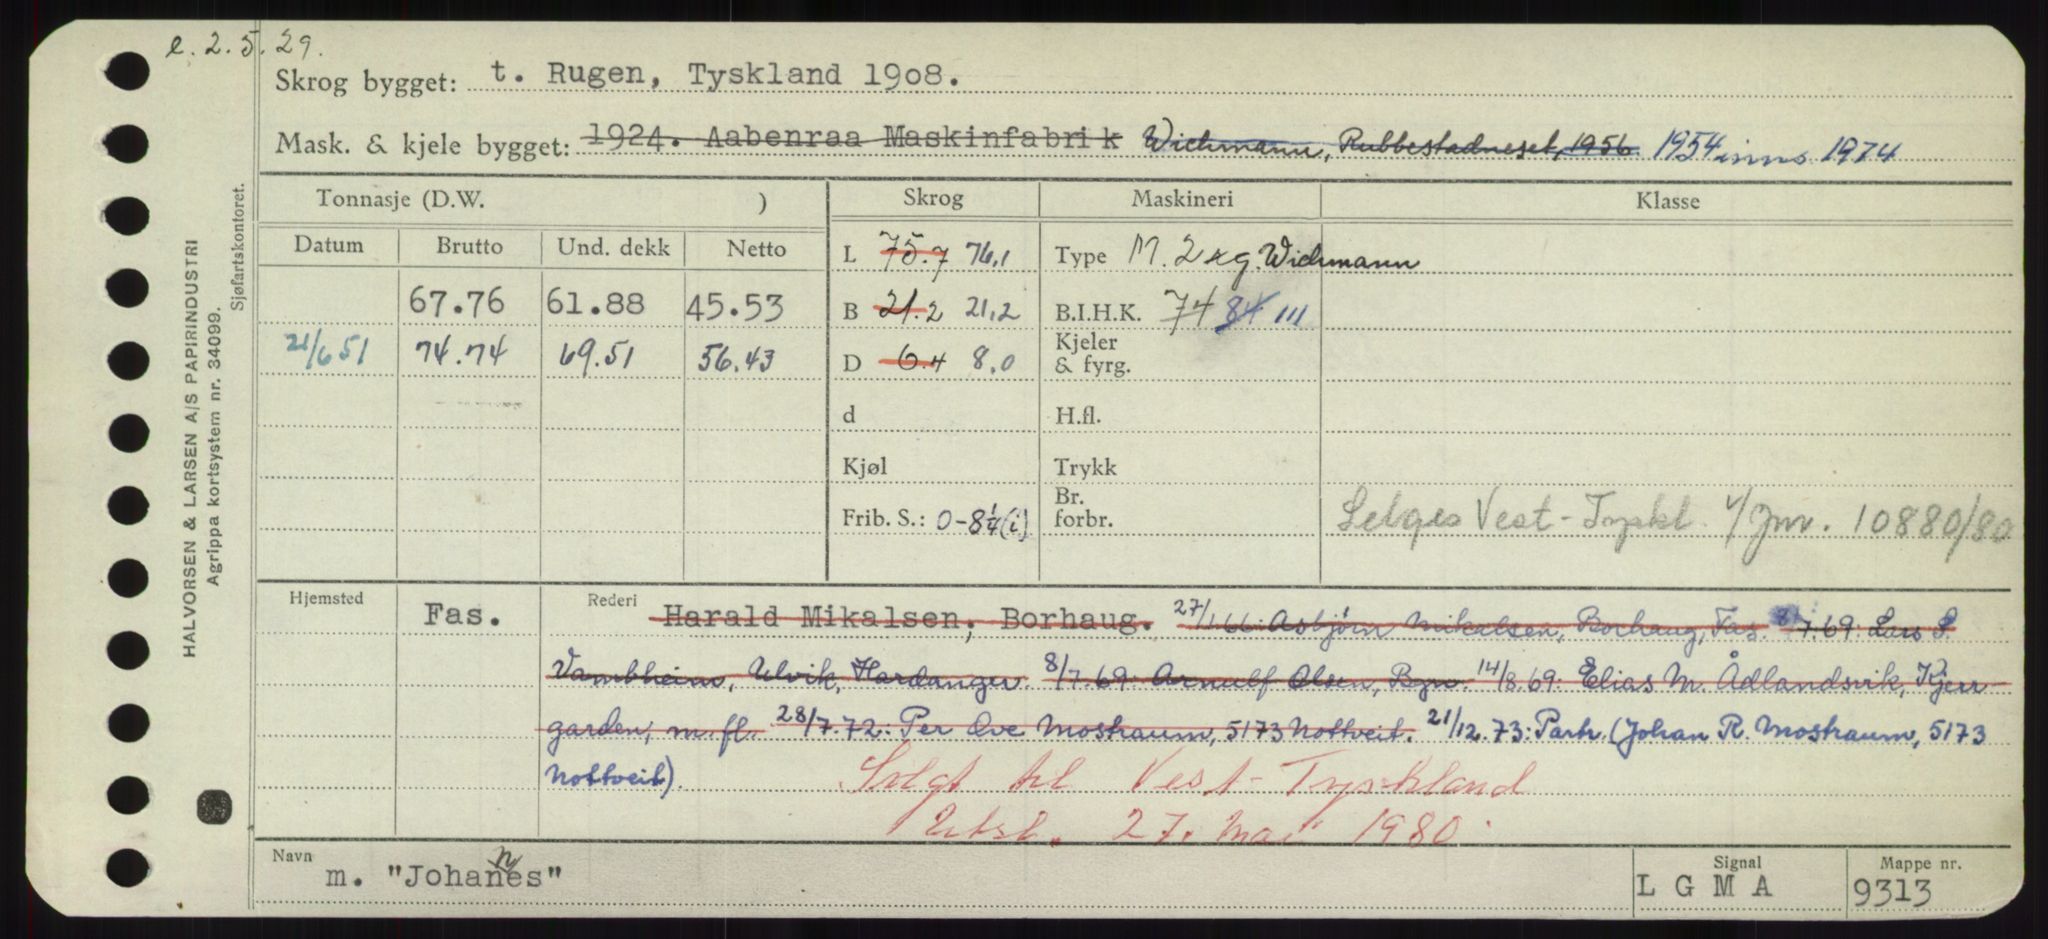 e. 2. 5. 29.
Skrog bygget: t. Rugen, Tyskland 1908.
Mask. & kjele bygget: 1924. Aabenraa Maskinfabrik Wichmann, Rubbestadneset, 1956 1954 inns. 1974
Tonnasje (D.W. ) Skrog Maskineri Klasse
Datum Brutto Und. dekk Netto L 75.7 76,1 Type M. 2 xg. Wichmann
67.76 61.88 45.53 B 21.2 21,2 B.I.H.K. 74 84 111
21/6 51 74.74 69.51 56.43 D 6.4 8,0 Kjeler & fyrg.
d H.fl.
Kjøl Trykk
Frib. S.: 0-8¼(i) Br. forbr. Selges Vest-Tyskl. 10880/80
Hjemsted Fas. Rederi Harald Mikalsen, Borhaug. 27/1 66: Asbjørn Mikalsen, Borhaug, Fas. 8/7.69: Lars S.
Vambheim, Ulvik, Hardanger. 8/7.69: Arnulf Olsen, Bgn. 14/8.69: Elias M. Ådlandsvik, Kjerr-
garden, m. fl. 28/7.72: Per Ove Mostraum, 5173 Nottveit. 21/12.73: Partr. (Johan R. Mostraum, 5173
Nottveit).
Solgt til Vest-Tyskland
Utsl. 27. mai 1980.
Navn m. "Johannes" Signal L G M A Mappe nr. 9313
HALVORSEN & LARSEN A/S PAPIRINDUSTRI
Agrippa kortsystem nr. 34099.
Sjøfartskontoret.